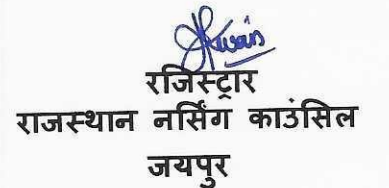 रजिस्ट्रार
राजस्थान नर्सिंग काउंसिल
जयपुर